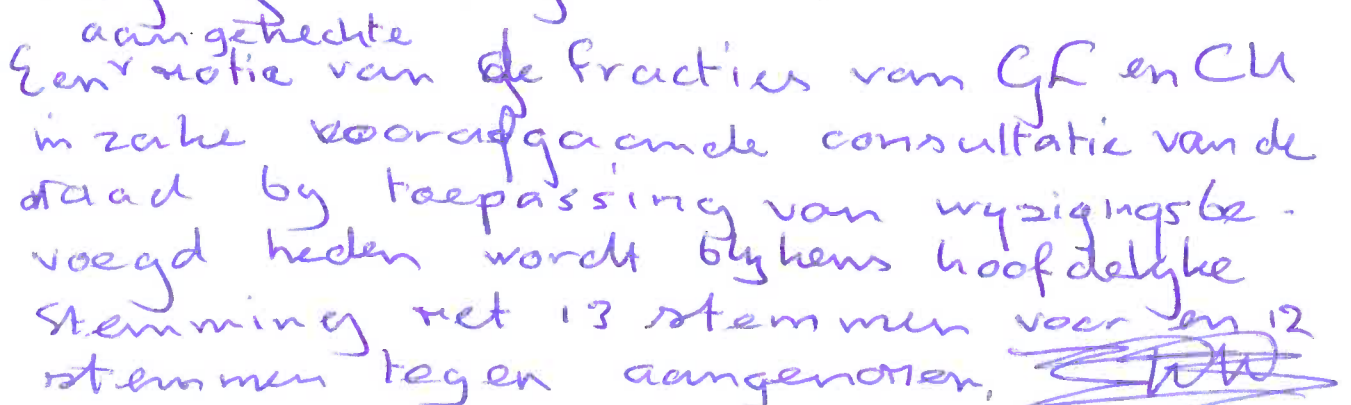 aangehechte
Een motie van de fracties van GL en CU
inzake voorafgaande consultatie van de
raad by toepassing van wyzigingsbe-
voegdheden wordt blykens hoofdelyke
stemming met 13 stemmen voor en 12
stemmen tegen aangenomen.